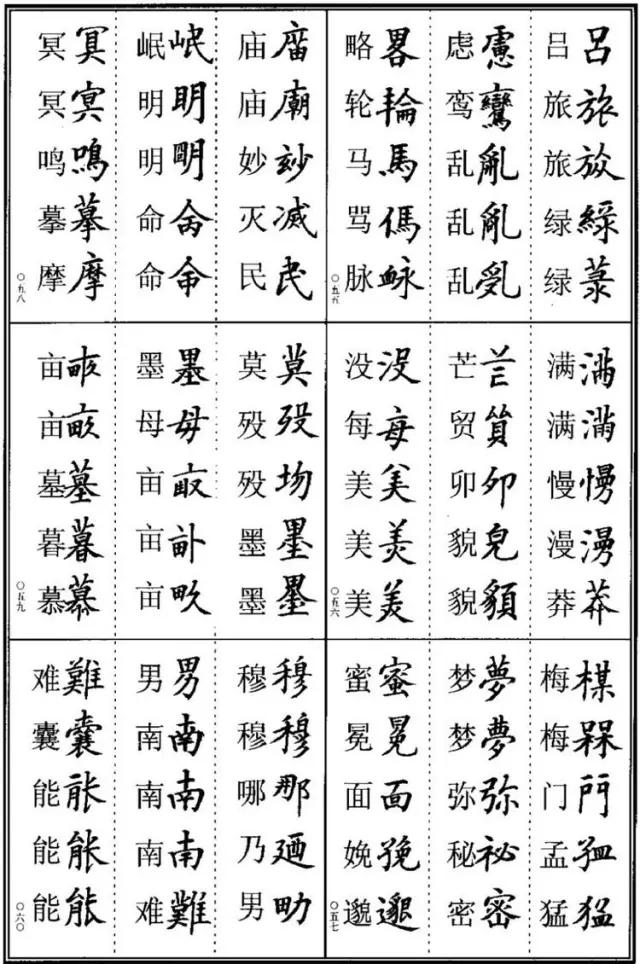 吕呂 旅旅 旅 绿綠 绿菉
虑慮 鸾鸞 乱亂 乱亂 乱
略畧 轮輪 马馬 骂傌 脉
〇五五
满满 满滿 慢慢 漫漫 莽莽
芒芒 贸貿 卯夘 貌皃 貌
没没 每每 美美 美 美羙
〇五六
梅楳 梅槑 门門 孟 猛猛
梦夢 梦夢 弥弥 秘祕 密密
蜜蜜 冕冕 面面 娩 邈邈
〇五七
庙庿 庙廟 妙玅 灭 民民
岷岷 明眀 明朙 命 命
冥 冥 鸣鳴 摹摹 摩摩
〇五八
莫莫 殁歿 殁 墨墨 墨墨
墨墨 母母 亩 亩 亩畂
亩 亩畝 墓墓 暮暮 慕慕
〇五九
穆穆 穆穆 哪那 乃迺 男
男男 南南 南南 南南 难難
难難 囊囊 能 能 能能
〇六〇